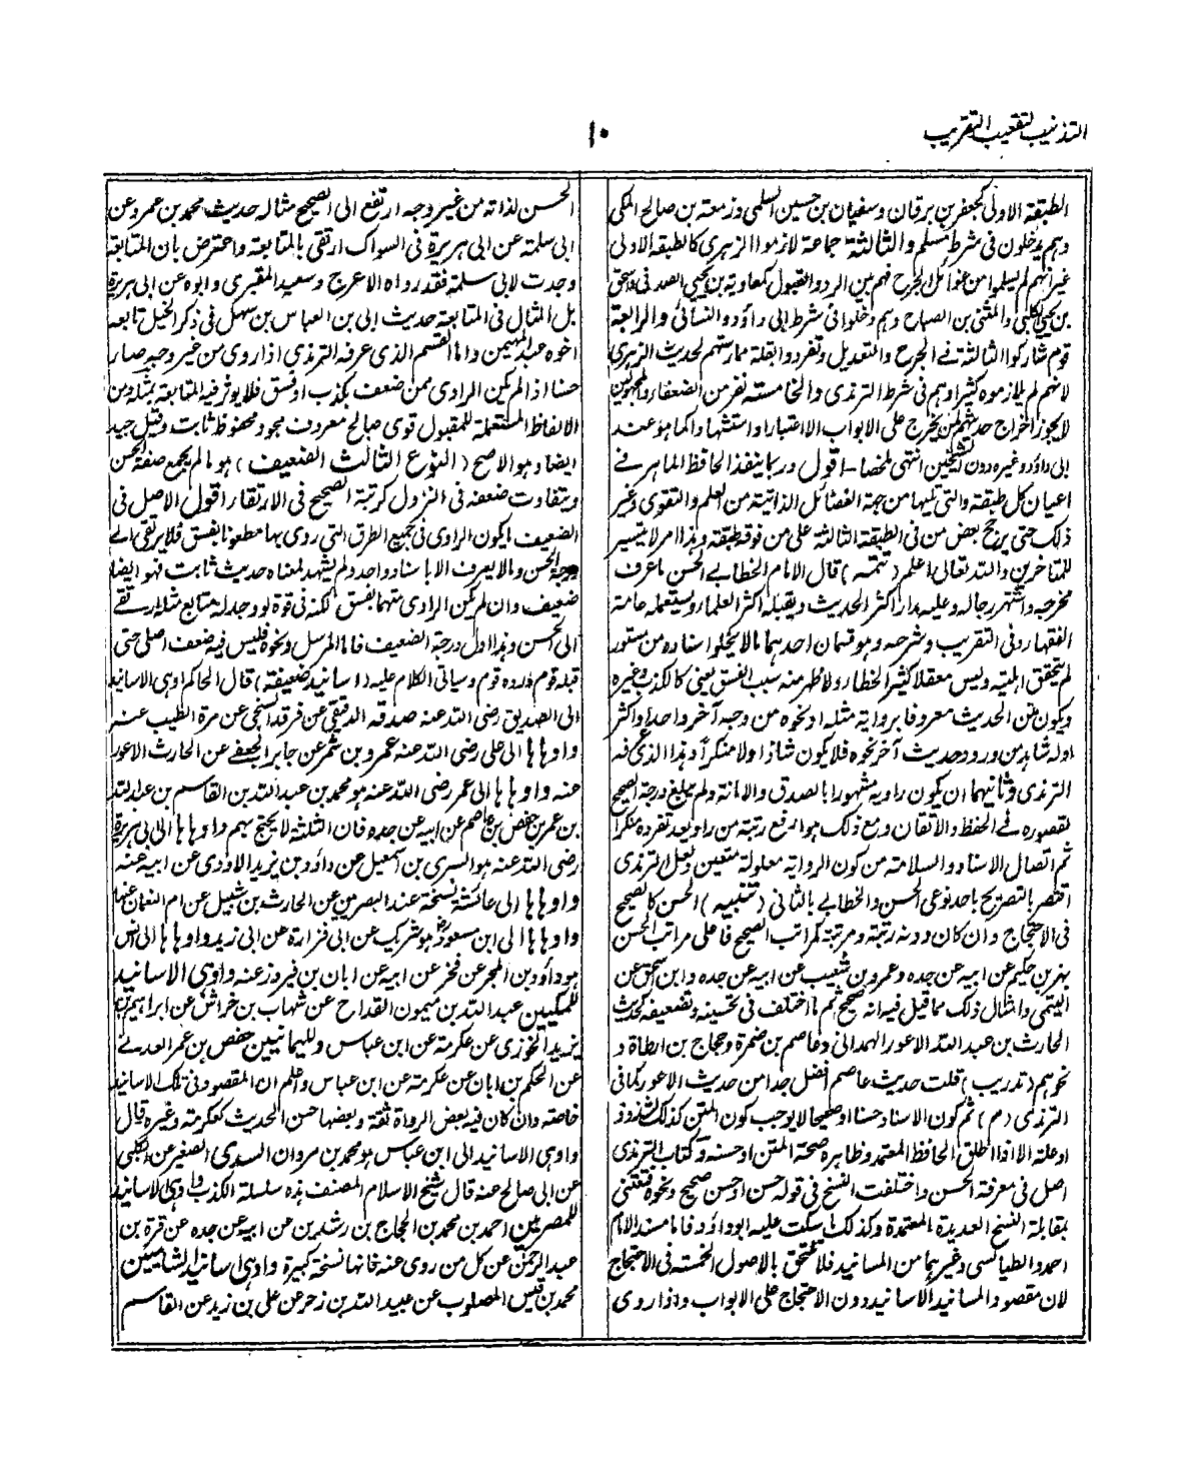 التذنيب لتعقيب التقريب
١٠
الطبقة الاولى كجعفر بن برقان وسفيان بن حسين السلمى وزمعة بن صالح المكى
وهم يدخلون فى شرط مسلم والثالثة جماعة لازموا الزهرى كالطبقة الاولى
غير انهم لم يسلموا من غوائل الجرح فهم بين الرد والقبول كمعاوية بن يحيى الصدفى واسحق
بن يحيى الكلبى والمثنى بن الصباح وهم دخلوا فى شرط ابى داؤد والنسائى والرابعة
قوم شاركوا الثالثة فى الجرح والتعديل وتفردوا بقلة ممارستهم لحديث الزهرى
لانهم لم يلازموه كثيرا وهم فى شرط الترمذى والخامسة نفر من الضعفاء والمجهولين
لا يجوز اخراج حديثهم لمن يخرج على الابواب الا اعتبارا واستشهادا كما هو عند
ابى داؤد وغيره دون الشيخين انتهى ملخصا - اقول وربما ينفذ الحافظ الماهر فى
اعيان كل طبقة والتى تليها من جهة الفضائل الذاتية من العلم والتقوى وغير
ذلك حتى يرجح بعض من فى الطبقة الثالثة على من فوق طبقته وهذا امر لا يتيسر
للمتاخرين والله تعالى اعلم (تتمه) قال الامام الخطابى الحسن ما عرف
مخرجه واشتهر رجاله وعليه مدار اكثر الحديث ويقبله اكثر العلماء ويستعمله عامة
الفقهاء وفى التقريب وشرحه وهو قسمان احدهما ما لا يخلوا سناده من مستور
لم يتحقق اهليته وليس مغفلا كثير الخطاء ولا ظهر منه سبب الفسق يعنى كالكذب وغيره
ويكون متن الحديث معروفا برواية مثله او نحوه من وجه آخر واحدا واكثر
اوله شاهد من ورود حديث آخر نحوه فلا يكون شاذا ولا منكراً وهذا الذى عرفه
الترمذى وثانيهما ان يكون راويه مشهورا بالصدق والامانة ولم يبلغ درجة الصحيح
لقصوره فى الحفظ والاتقان ومع ذلك هو ارفع رتبة من راو يعد تفرده منكرا
ثم اتصال الاسناد والسلامة من كون الرواية معلولة متعين ولعل الترمذى
اقتصر بالتصريح باحد نوعى الحسن والخطابى بالثانى (تنبيه) الحسن كالصحيح
فى الاحتجاج وان كان دونه رتبة ومرتبة كمراتب الصحيح فاعلى مراتب الحسن
بهز بن حكيم عن ابيه عن جده وعمرو بن شعيب عن ابيه عن جده وابن اسحق عن
التيمى وامثال ذلك مما قيل فيه انه صحيح ثم ما اختلف فى تحسينه وتضعيفه كحديث
الحارث بن عبد الله الاعور الهمدانى وعاصم بن ضمرة وحجاج بن ارطاة و
نحوهم (تدريب) قلت حديث عاصم افضل جدا من حديث الاعور كما فى
الترمذى (م) ثم كون الاسناد حسنا او صحيحا لا يوجب كون المتن كذلك لشذوذ
او علة الا اذا اطلق الحافظ المعتمد وظاهره صحة المتن او حسنه وكتاب الترمذى
اصل فى معرفة الحسن واختلفت النسخ فى قوله حسن او حسن صحيح ونحوه فتعتنى
بمقابلة النسخ العديدة المعتمدة وكذلك ما سكت عليه ابو داؤد فاما مسند الامام
احمد والطيالسى وغيرهما من المسانيد فلا تلحق بالاصول الخمسة فى الاحتجاج
لان مقصود المسانيد الاسانيد دون الاحتجاج على الابواب واذا روى
الحسن لذاته من غير وجه ارتفع الى الصحيح مثاله حديث محمد بن عمرو عن
ابى سلمة عن ابى هريرة فى السواك ارتقى بالمتابعة واعترض بان المتابعة
وجدت لابى سلمة فقد رواه الاعرج وسعيد المقبرى وابوه عن ابى هريرة
بل المثال فى المتابعة حديث ابى بن العباس بن سهل فى ذكر الخيل تابعه
اخوه عبد المهيمن واما القسم الذى عرفه الترمذى اذا روى من غير وجه صار
حسنا اذا لم يكن الراوى ممن ضعف بكذب او فسق فلا يوثر فيه المتابعة بمثله ومن
الالفاظ المستعملة للمقبول قوى صالح معروف مجود محفوظ ثابت وقيل جيد
ايضا وهو الاصح (النوع الثالث الضعيف) هو ما لم يجمع صفة الحسن
ويتفاوت ضعفه فى النزول كرتبة الصحيح فى الارتقاء اقول الاصل فى
الضعيف ما يكون الراوى فى جميع الطرق التى روى بها مطعونا بفسق فلا يرتقى الى
درجة الحسن وما لا يعرف الا باسناد واحد ولم يشهد لمعناه حديث ثابت فهو ايضا
ضعيف وان لم يكن الراوى متهما بفسق لكنه فى قوة لو وجد له متابع مثله ارتقى
الى الحسن وهذا اول درجة الضعيف فاما المرسل ونحوه فليس فيه ضعف اصلى حتى
قبله قوم ورده قوم وسياتى الكلام عليه (اسانيد ضعيفة) قال الحاكم اوهى الاسانيد
الى الصديق رضى الله عنه صدقة الدقيقى عن فرقد السبخى عن مرة الطيب عنه
واوهاها الى على رضى الله عنه عمرو بن شمر عن جابر الجعفى عن الحارث الاعور
عنه واوهاها الى عمر رضى الله عنه هو محمد بن عبد الله بن القاسم بن عبد الله
بن عمر بن حفص بن عاصم عن ابيه عن جده فان الثلثة لا يحتج بهم واوهاها الى ابى هريرة
رضى الله عنه هو السرى بن اسمعيل عن داؤد بن يزيد الاودى عن ابيه عنه
واوهاها الى عائشة نسخة عند البصريين عن الحارث بن شبيل عن ام النعمان عنها
واوهاها الى ابن مسعود هو شريك عن ابى فزارة عن ابى زيد واوهاها الى انس
هو داؤد بن المجبر عن قحذم عن ابيه عن ابان بن فيروز عنه واوهى الاسانيد
للمكيين عبد الله بن ميمون القداح عن شهاب بن خراش عن ابراهيم بن
يزيد الخوزى عن عكرمة عن ابن عباس ولليمانيين حفص بن عمر العدنى
عن الحكم بن ابان عن عكرمة عن ابن عباس واعلم ان المقصود فى تلك الاسانيد
خاصته وان كان فيه بعض الرواة ثقة وبعضها حسن الحديث كعكرمة وغيره قال
واوهى الاسانيد الى ابن عباس هو محمد بن مروان السدى الصغير عن الكلبى
عن ابى صالح عنه قال شيخ الاسلام المصنف هذه سلسلة الكذب واوهى الاسانيد
للمصريين احمد بن محمد بن الحجاج بن رشدين عن ابيه عن جده عن قرة بن
عبد الرحمن عن كل من روى عنه فانها نسخة كبيرة واوهى اسانيد الشاميين
محمد بن قيس المصلوب عن عبيد الله بن زحر عن على بن زيد عن القاسم